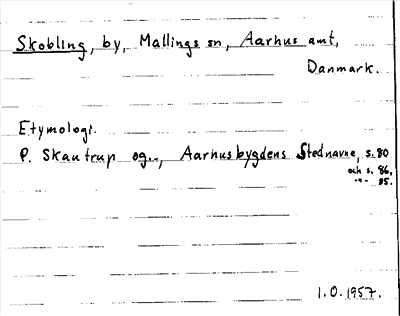 Skobling, by, Mallings sn, Aarhus amt,
Danmark.
Etymologi.
P. Skautrup og.., Aarhusbygdens Stednavne, s. 80
och s. 86,
-"- 85.
1.0.1957.